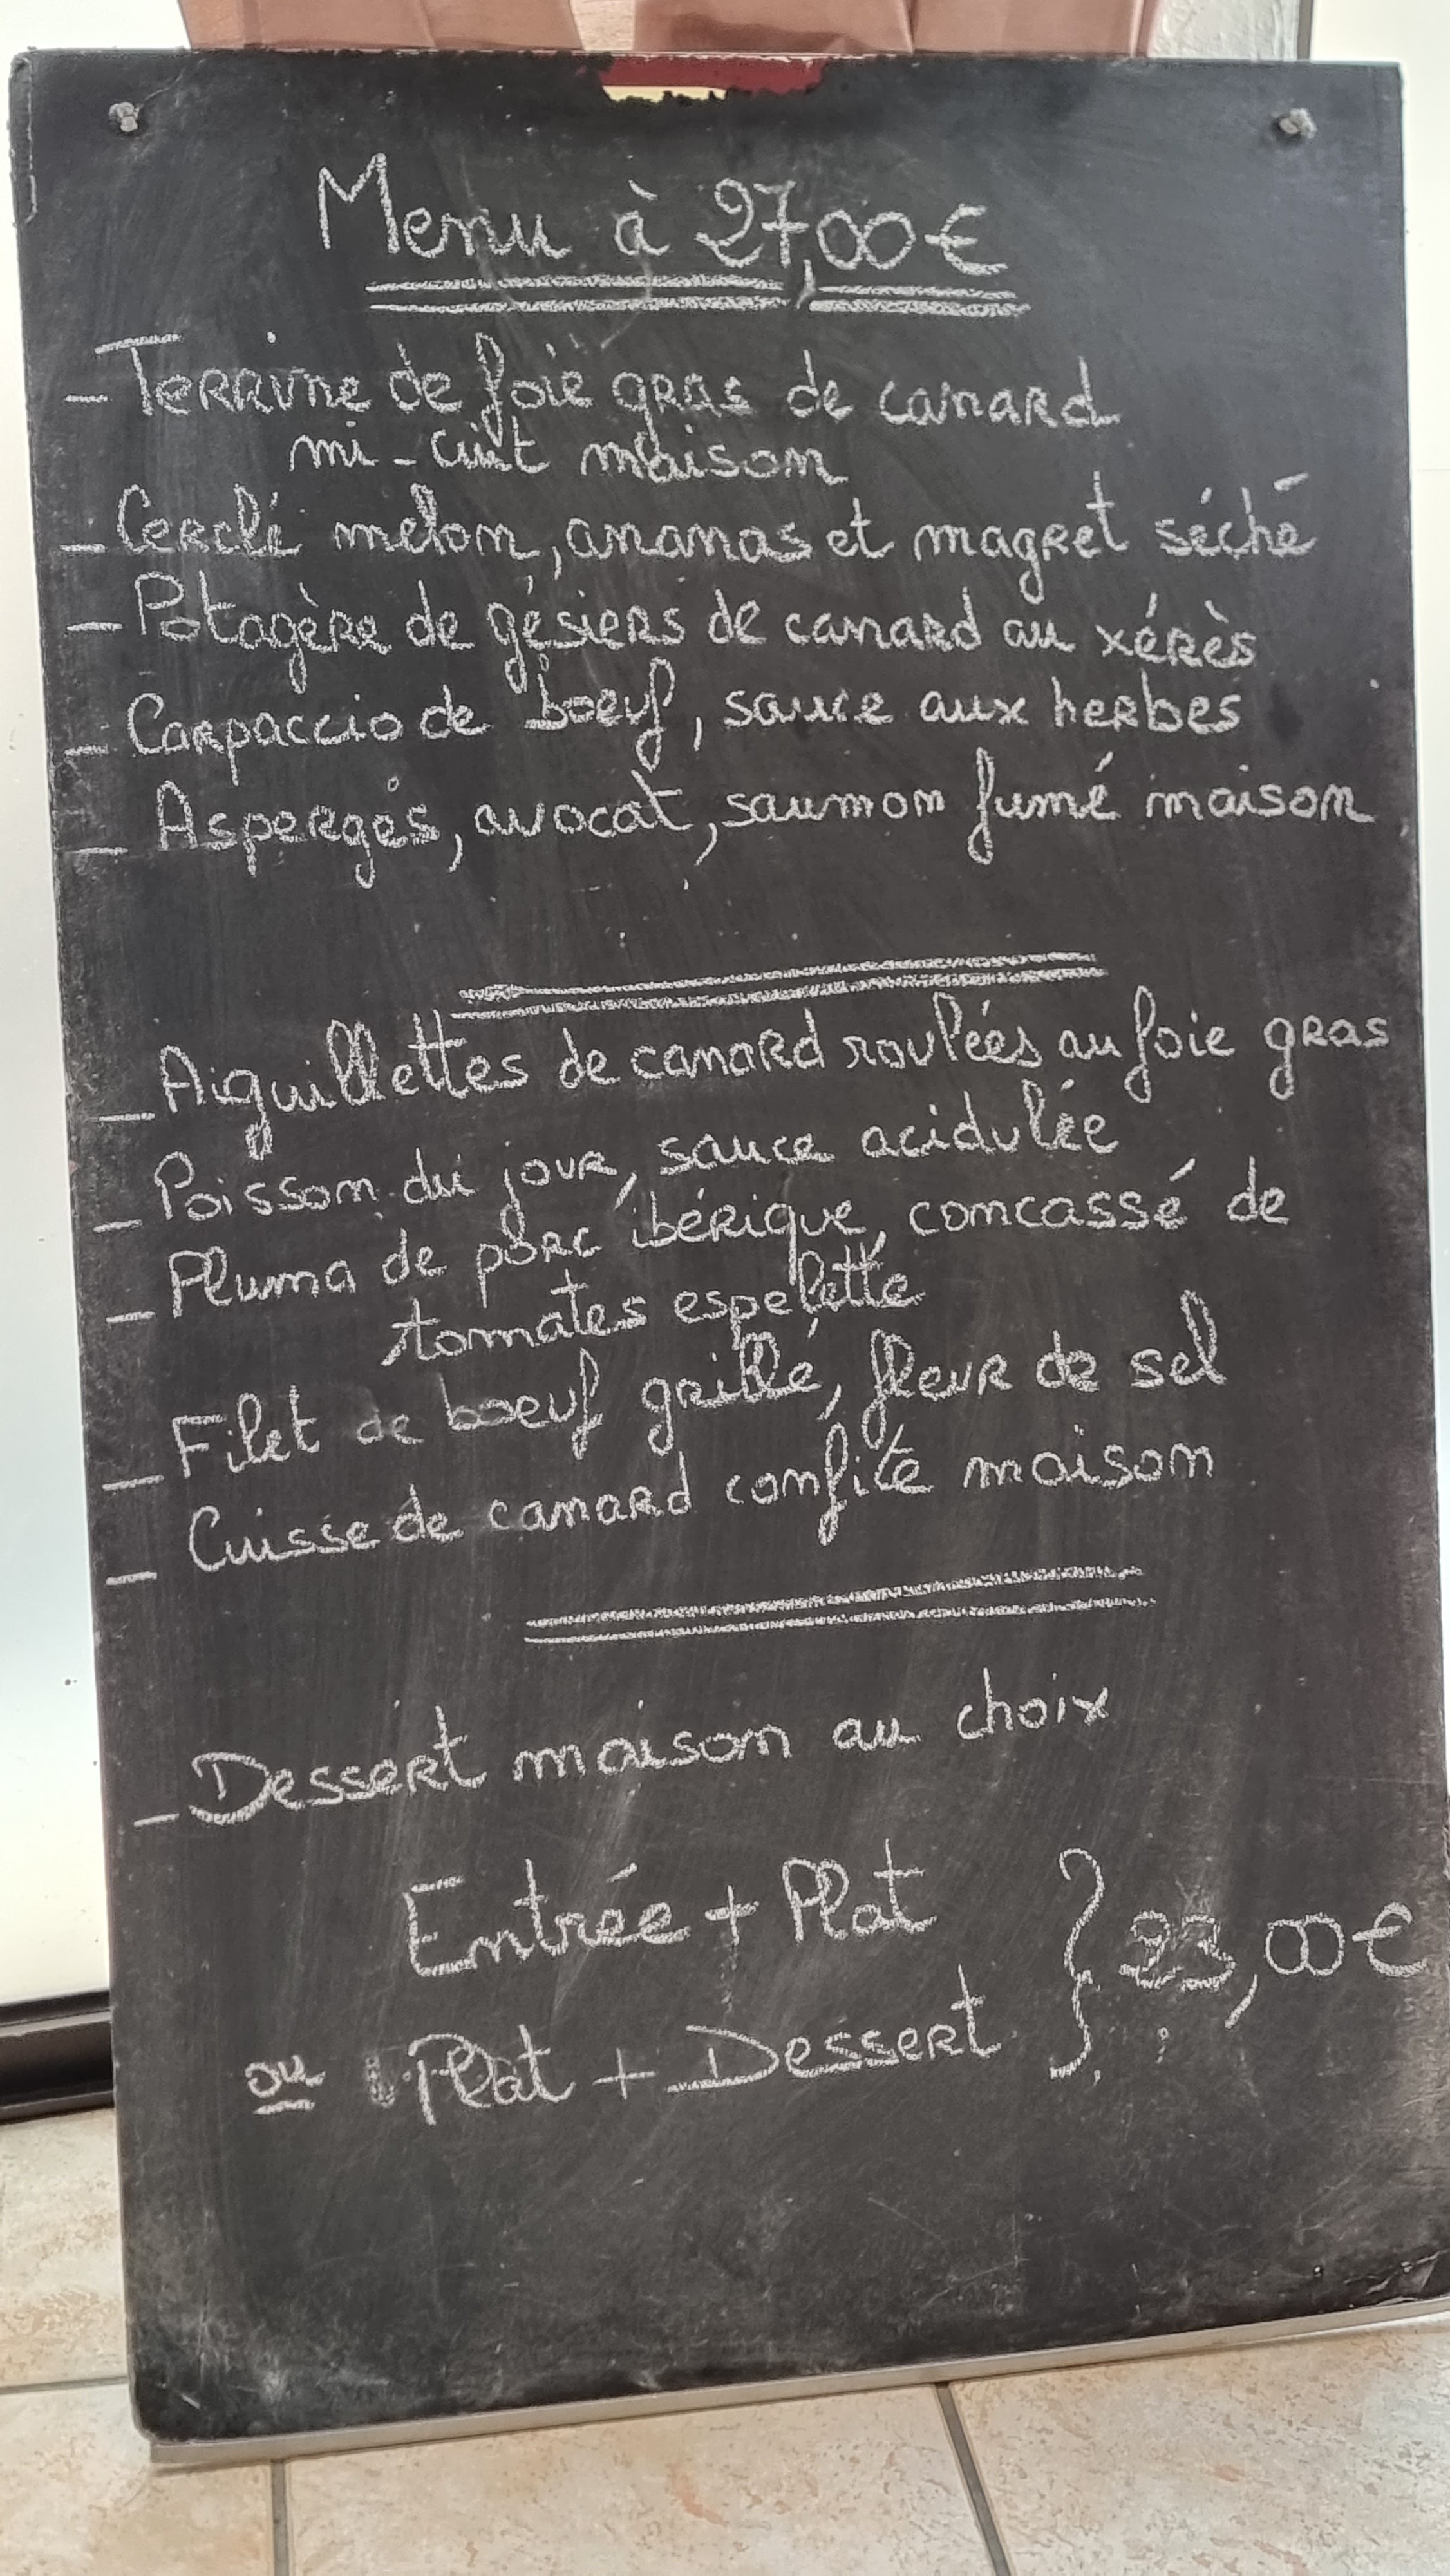 Menu à 27,00€
- Terrine de foie gras de canard
mi-cuit maison
- Cerclé melon, ananas et magret séché
- Potagère de gésiers de canard au xérès
- Carpaccio de boeuf, sauce aux herbes
- Asperges, avocat, saumon fumé maison
- Aiguillettes de canard roulées au foie gras
- Poisson du jour, sauce acidulée
- Pluma de porc ibérique, concassé de
tomates espelette
- Filet de boeuf grillé, fleur de sel
- Cuisse de canard confite maison
- Dessert maison au choix
Entrée + Plat
} 23,00€
ou Plat + Dessert